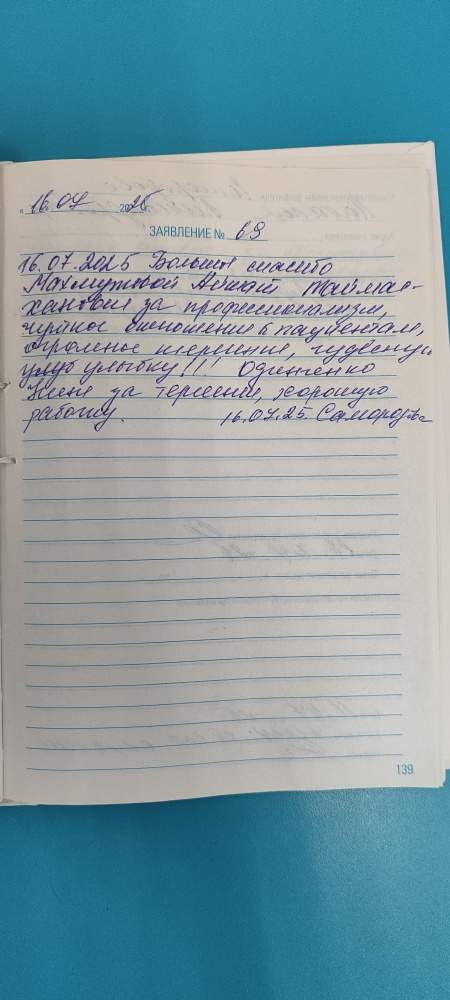 « 16. 07 2025
ЗАЯВЛЕНИЕ № 69
16.07.2025 Большое спасибо
Махмутовой
за профессионализм,
чуткое отношение к пациентам,
огромное терпение, чудесную
улыбку!!!
за терпение, хорошую
работу. 16.07.25.
139